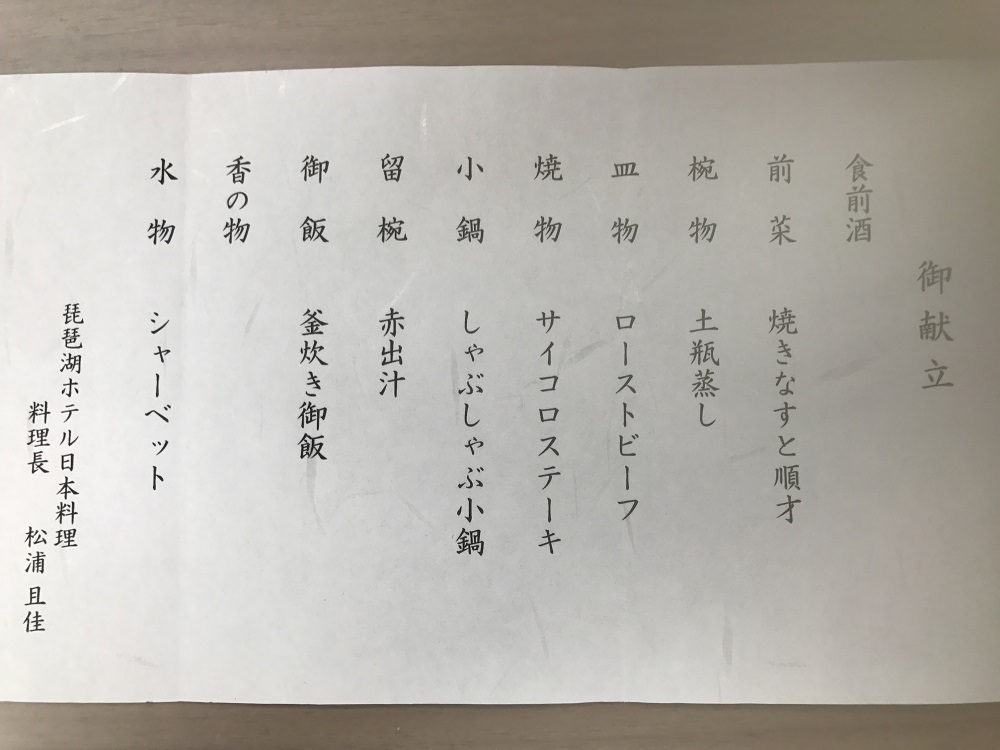 御献立
食前酒
前菜 焼きなすと順才
椀物 土瓶蒸し
皿物 ローストビーフ
焼物 サイコロステーキ
小鍋 しゃぶしゃぶ小鍋
留椀 赤出汁
御飯 釜炊き御飯
香の物
水物 シャーベット
琵琶湖ホテル日本料理
料理長 松浦且佳